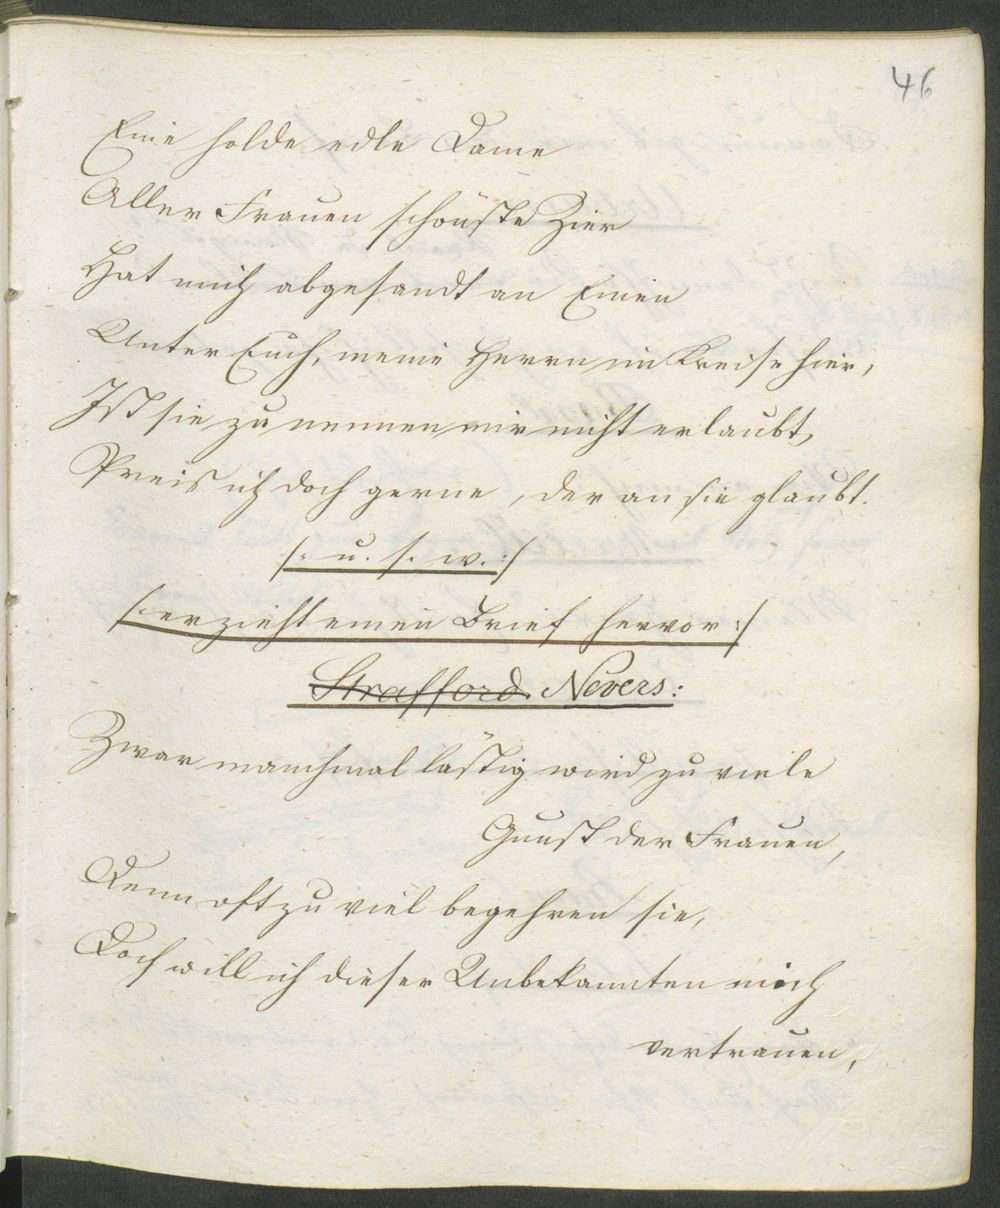 46
Eine holde edle Dame
Aller Frauen schönste Zier
Hat mich abgesandt an Einen
Unter Euch, meine Herrn im Kreise hier,
Ist sie zu nennen mir nicht erlaubt,
Preis ich doch gerne, der an sie glaubt.
/: u. s. w. :/
/: er zieht einen Brief hervor :/
Strafford Nevers:
Zwar manchmal lästig wird zu viele
Gunst der Frauen,
Denn oft zu viel begehren sie,
Doch will ich dieser Unbekannten mich
vertrauen,